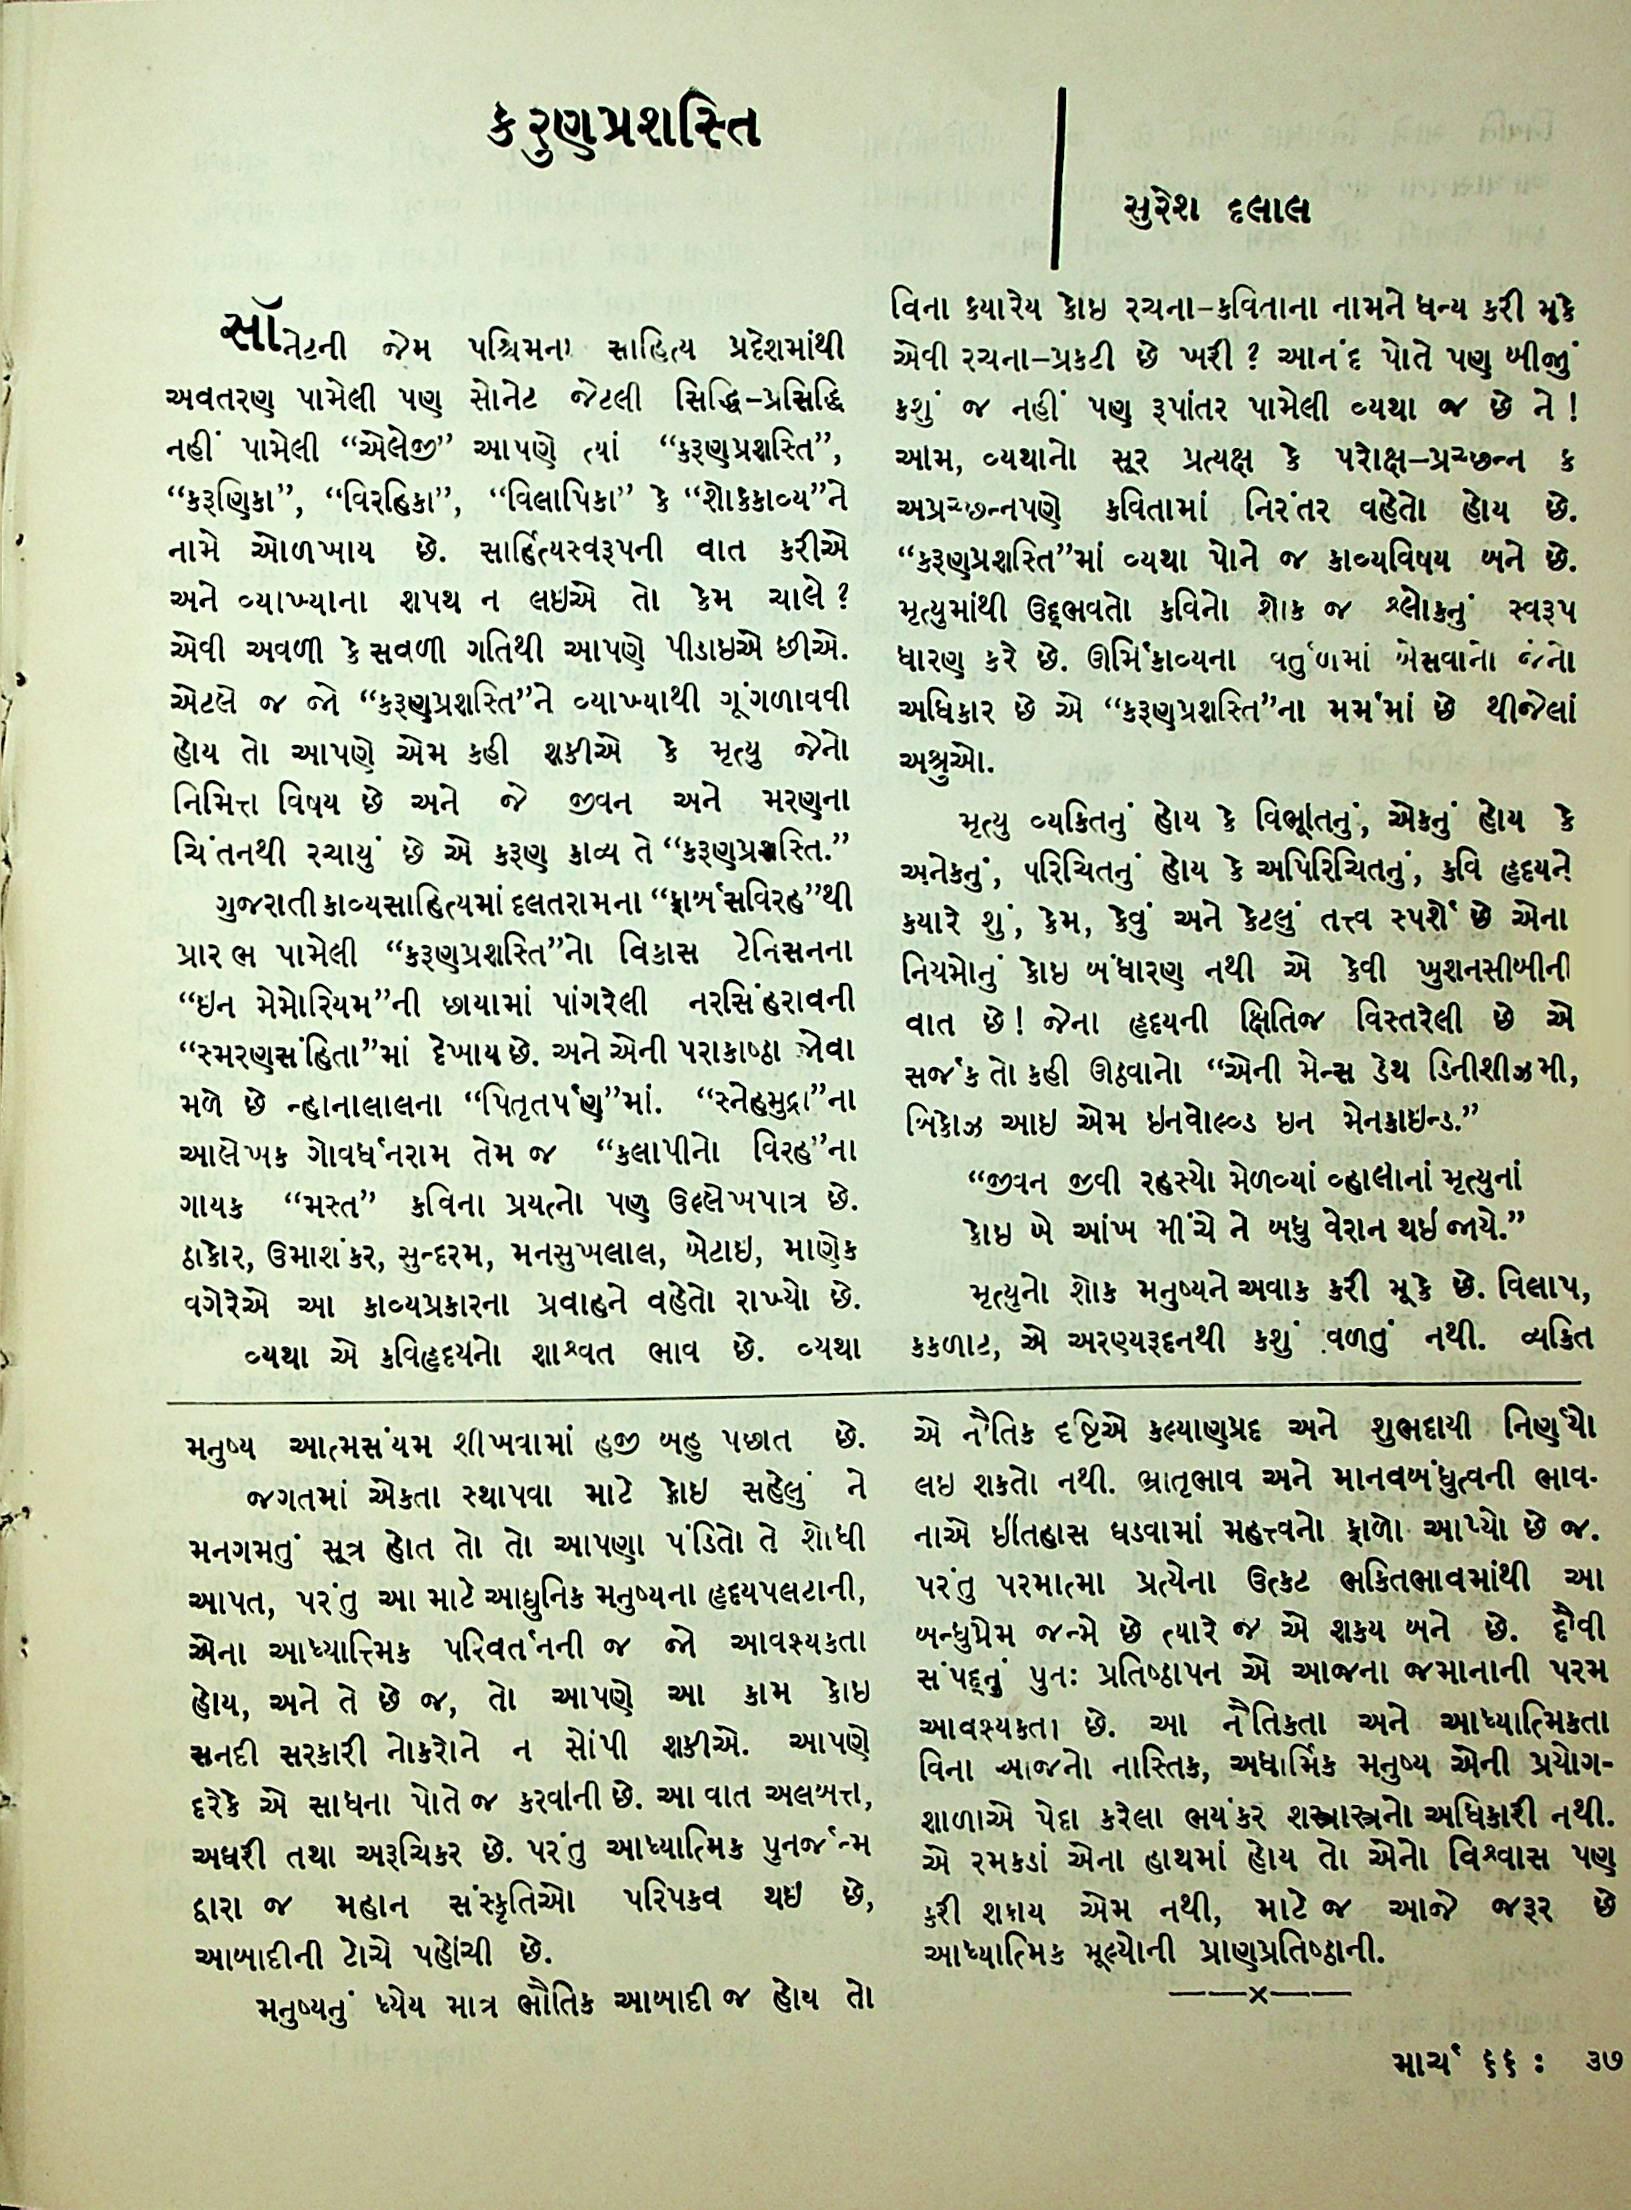 કરુણપ્રશસ્તિ
સુરેશ દલાલ
સૉનેટની જેમ પશ્ચિમના સાહિત્ય પ્રદેશમાંથી
અવતરણ પામેલી પણ સોનેટ જેટલી સિદ્ધિ-પ્રસિદ્ધિ
નહીં પામેલી “એલેજી” આપણે ત્યાં “કરૂણપ્રશસ્તિ”,
“કરૂણિકા”, “વિરહિકા”, “વિલાપિકા” કે “શોકકાવ્ય”ને
નામે ઓળખાય છે. સાહિત્યસ્વરૂપની વાત કરીએ
અને વ્યાખ્યાના શપથ ન લઇએ તો કેમ ચાલે?
એવી અવળી કે સવળી ગતિથી આપણે પીડાઇએ છીએ.
એટલે જ જો “કરૂણપ્રશસ્તિ”ને વ્યાખ્યાથી ગૂંગળાવવી
હોય તો આપણે એમ કહી શકીએ કે મૃત્યુ જેનો
નિમિત્ત વિષય છે અને જે જીવન અને મરણના
ચિંતનથી રચાયું છે એ કરૂણ કાવ્ય તે “કરૂણપ્રશસ્તિ.”
ગુજરાતી કાવ્યસાહિત્યમાં દલતરામના “ફાર્બસવિરહ”થી
પ્રારંભ પામેલી “કરૂણપ્રશસ્તિ”નો વિકાસ ટેનિસનના
“ઇન મેમોરિયમ”ની છાયામાં પાંગરેલી નરસિંહરાવની
“સ્મરણસંહિતા”માં દેખાય છે. અને એની પરાકાષ્ઠા જોવા
મળે છે ન્હાનાલાલના “પિતૃતર્પણ”માં. “સ્નેહમુદ્રા”ના
આલેખક ગોવર્ધનરામ તેમ જ “કલાપીનો વિરહ”ના
ગાયક “મસ્ત” કવિના પ્રયત્નો પણ ઉલ્લેખપાત્ર છે.
ઠાકોર, ઉમાશંકર, સુન્દરમ, મનસુખલાલ, બેટાઇ, માણેક
વગેરેએ આ કાવ્યપ્રકારના પ્રવાહને વહેતો રાખ્યો છે.
વ્યથા એ કવિહૃદયનો શાશ્વત ભાવ છે. વ્યથા
વિના કયારેય કોઇ રચના-કવિતાના નામને ધન્ય કરી મૂકે
એવી રચના-પ્રકટી છે ખરી? આનંદ પોતે પણ બીજું
કશું જ નહીં પણ રૂપાંતર પામેલી વ્યથા જ છે ને!
આમ, વ્યથાનો સૂર પ્રત્યક્ષ કે પરોક્ષ-પ્રચ્છન્ન ક
અપ્રચ્છન્નપણે કવિતામાં નિરંતર વહેતો હોય છે.
“કરૂણપ્રશસ્તિ”માં વ્યથા પોને જ કાવ્યવિષય બને છે.
મૃત્યુમાંથી ઉદ્દભવતો કવિનો શોક જ શ્લોકનું સ્વરૂપ
ધારણ કરે છે. ઊર્મિકાવ્યના વર્તુળમાં બેસવાનો જેનો
અધિકાર છે એ “કરૂણપ્રશસ્તિ”ના મર્મમાં છે થીજેલાં
અશ્રુઓ.
મૃત્યુ વ્યકિતનું હોય કે વિભૂતિનું, એકનું હોય કે
અનેકનું, પરિચિતનું હોય કે અપિરિચિતનું, કવિ હૃદયને
કયારે શું, કેમ, કેવું અને કેટલું તત્ત્વ સ્પર્શે છે એના
નિયમોનું કોઇ બંધારણ નથી એ કેવી ખુશનસીબીની
વાત છે! જેના હૃદયની ક્ષિતિજ વિસ્તરેલી છે એ
સર્જક તો કહી ઊઠવાનો “એની મેન્સ ડેથ ડિનીશીઝ મી,
બિકોઝ આઇ એમ ઇનવોલ્વ્ડ ઇન મેનકાઇન્ડ.”
“જીવન જીવી રહસ્યો મેળવ્યાં વ્હાલોનાં મૃત્યુનાં
કોઇ બે આંખ મીંચે ને બધુ વેરાન થઇ જાયે.”
મૃત્યુનો શોક મનુષ્યને અવાક કરી મૂકે છે. વિલાપ,
કકળાટ, એ અરણ્યરૂદનથી કશું વળતું નથી. વ્યકિત
મનુષ્ય આત્મસંયમ શીખવામાં હજી બહુ પછાત છે.
જગતમાં એકતા સ્થાપવા માટે કોઇ સહેલું ને
મનગમતું સૂત્ર હોત તો તો આપણા પંડિતો તે શોધી
આપત, પરંતુ આ માટે આધુનિક મનુષ્યના હૃદયપલટાની,
એના આધ્યાત્મિક પરિવર્તનની જ જો આવશ્યકતા
હોય, અને તે છે જ, તો આપણે આ કામ કોઇ
સનદી સરકારી નોકરોને ન સોંપી શકીએ. આપણે
દરેકે એ સાધના પોતે જ કરવાની છે. આ વાત અલબત્ત,
અઘરી તથા અરૂચિકર છે. પરંતુ આધ્યાત્મિક પુનર્જન્મ
દ્વારા જ મહાન સંસ્કૃતિઓ પરિપકવ થઇ છે,
આબાદીની ટોચે પહોંચી છે.
મનુષ્યનું ધ્યેય માત્ર ભૌતિક આબાદી જ હોય તો
એ નૈતિક દૃષ્ટિએ કલ્યાણપ્રદ અને શુભદાયી નિર્ણયો
લઇ શકતો નથી. ભ્રાતૃભાવ અને માનવબંધુત્વની ભાવ-
નાએ ઈતિહાસ ઘડવામાં મહત્ત્વનો ફાળો આપ્યો છે જ.
પરંતુ પરમાત્મા પ્રત્યેના ઉત્કટ ભકિતભાવમાંથી આ
બન્ધુપ્રેમ જન્મે છે ત્યારે જ એ શકય બને છે. દૈવી
સંપદ્દનું પુનઃ પ્રતિષ્ઠાપન એ આજના જમાનાની પરમ
આવશ્યકતા છે. આ નૈતિકતા અને આધ્યાત્મિકતા
વિના આજનો નાસ્તિક, અધાર્મિક મનુષ્ય એની પ્રયોગ-
શાળાએ પેદા કરેલા ભયંકર શસ્ત્રાસ્ત્રનો અધિકારી નથી.
એ રમકડાં એના હાથમાં હોય તો એનો વિશ્વાસ પણ
કરી શકાય એમ નથી, માટે જ આજે જરૂર છે
આધ્યાત્મિક મૂલ્યોની પ્રાણપ્રતિષ્ઠાની.
——×——
માર્ચ ૬૬ : ૩૭